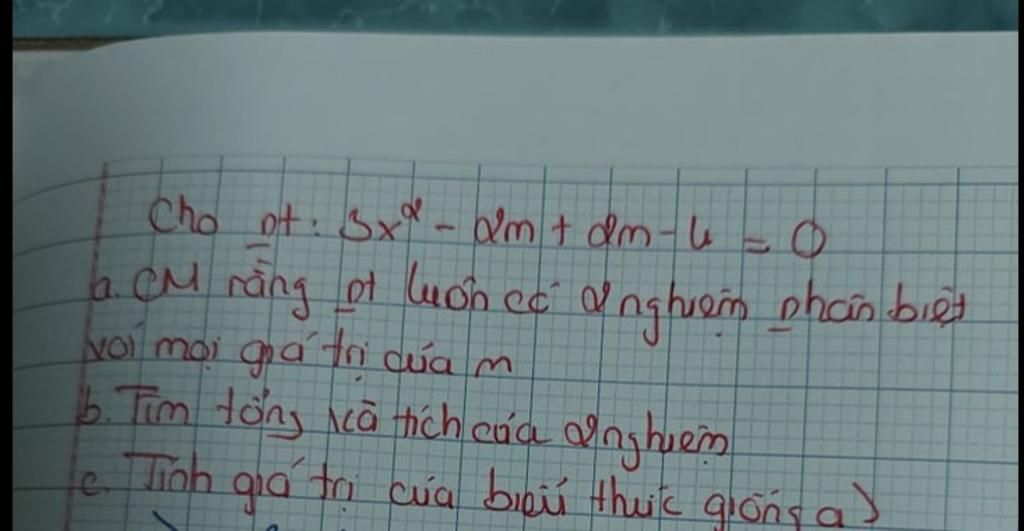 Cho pt: 3x² - 2m + 2m - 4 = 0
a. CM rằng pt luôn có 2 nghiệm phân biệt
với mọi giá trị của m
b. Tìm tổng và tích của 2 nghiệm
c. Tính giá trị của biểu thức giống a)